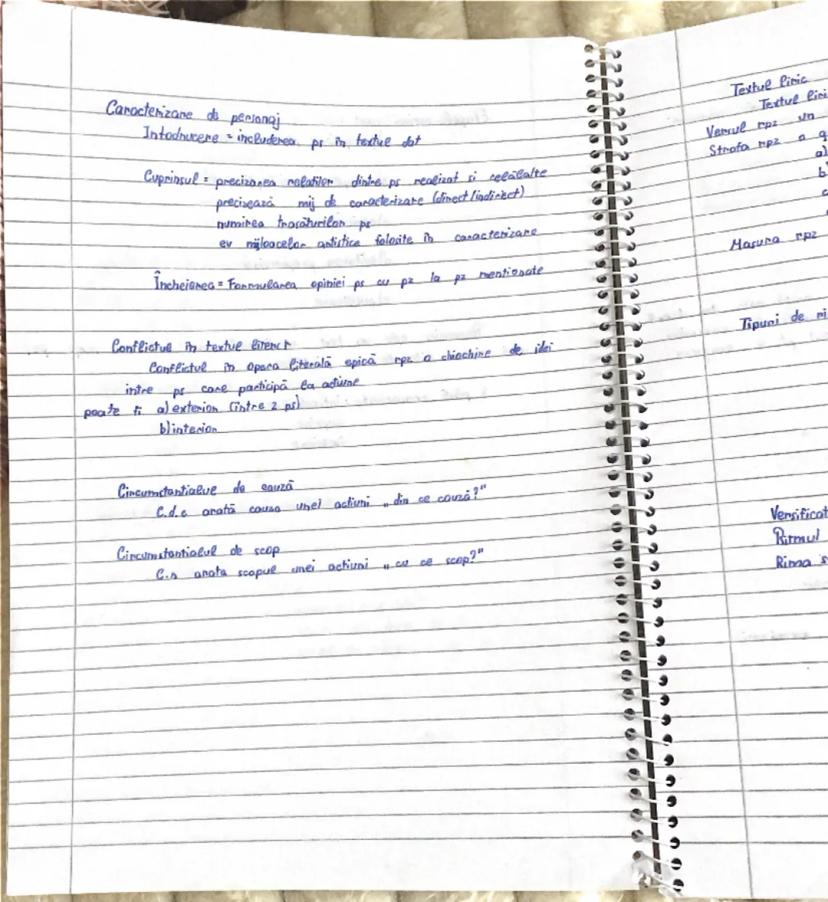 Caracterizare de personaj
Intoducere = includerea ps în textul dat
Cuprinsul = precizarea relatiilor dintre ps realizat si celălalte
precizează mij de caracterizare (direct/indirect)
numirea trasăturilor ps
ev mijloacelor artistice folosite în caracterizare
Încheierea = Formularea opiniei ps cu pz la pz mentionate
Conflictul în textul literar
Conflictul în opera literală epică rpz o chiochine de idei
intre ps care participă la adiune
poate fi a) exterior (intre 2 ps)
b) interior
Circumstantialul de cauză
C.d.c arată cauza unei actiuni „din ce cauză?"
Circumstantialul de scop
C.s arata scopul unei actiuni „cu ce scop?"
Textul liric
Textul liri
Versul rpz un
Strofa rpz o g
a)
b
Masura rpz
Tipuri de ri
Versificat
Ritmul
Rima s